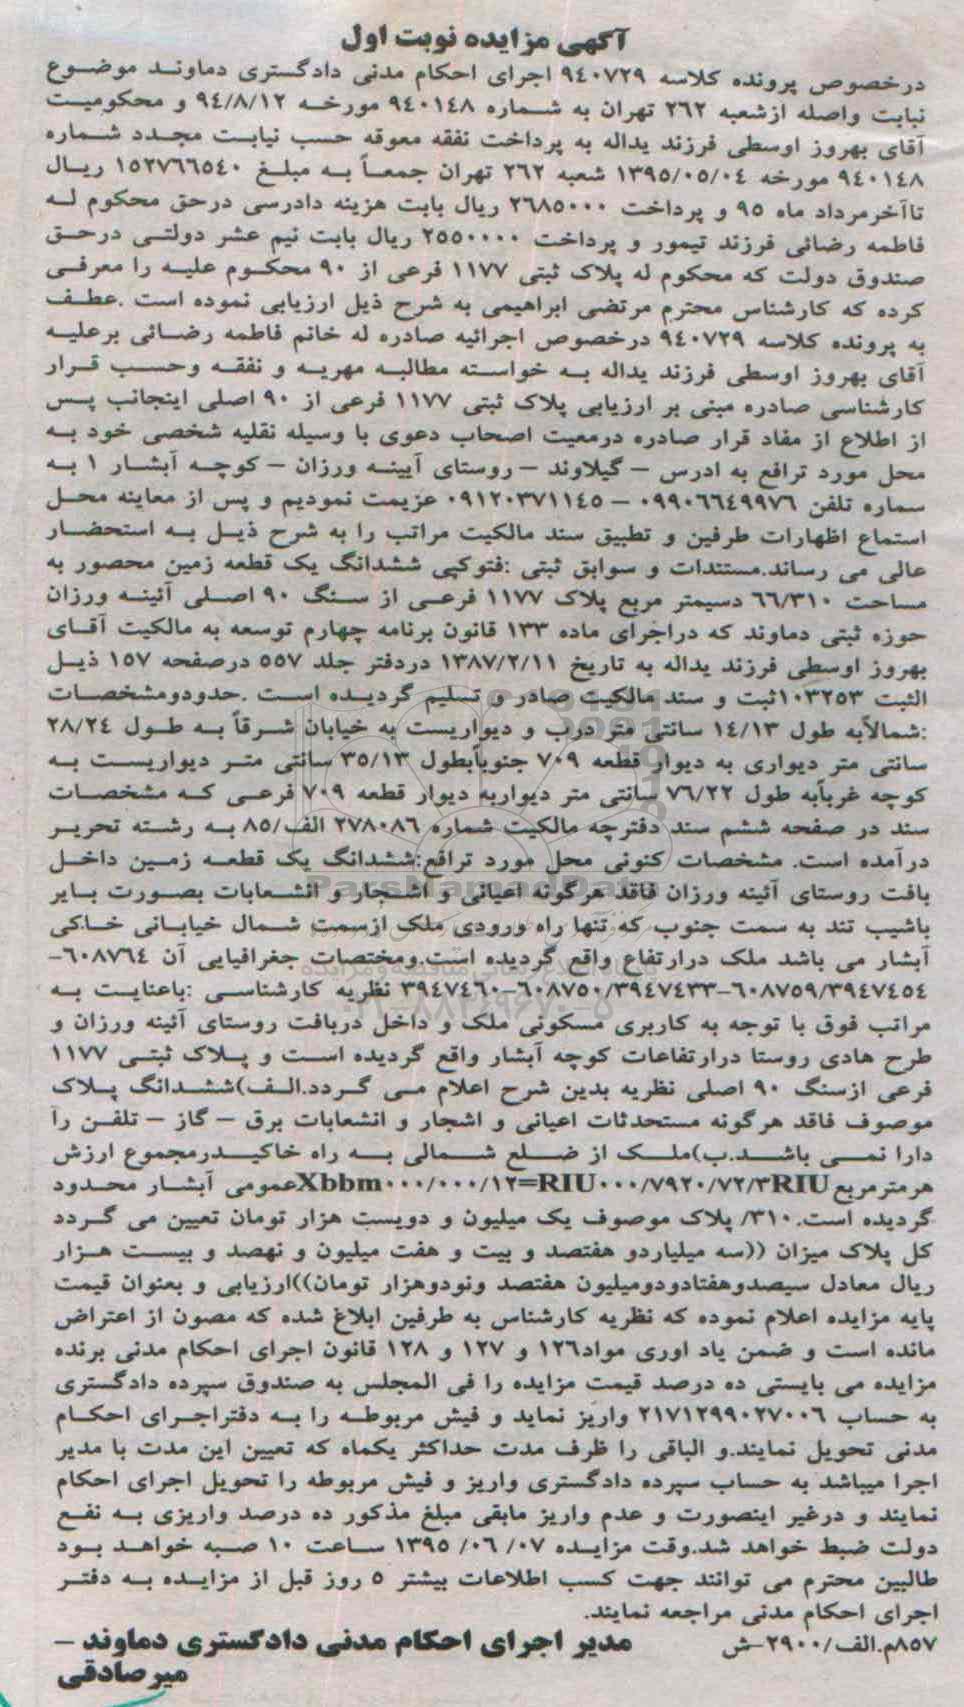 آگهی مزایده نوبت اول
درخصوص پرونده کلاسه ۹۴۰۷۲۹ اجرای احکام مدنی دادگستری دماوند موضوع
نیابت واصله ازشعبه ۲۶۲ تهران به شماره ۹۴۰۱۴۸ مورخه ۹۴/۸/۱۲ و محکومیت
آقای بهروز اوسطی فرزند یداله به پرداخت نفقه معوقه حسب نیابت مجدد شماره
۹۴۰۱۴۸ مورخه ۱۳۹۵/۰۵/۰۴ شعبه ۲۶۲ تهران جمعاً به مبلغ ۱۵۲۷۶۶۵۴۰ ریال
تاآخرمرداد ماه ۹۵ و پرداخت ۲۶۸۵۰۰۰ ریال بابت هزینه دادرسی درحق محکوم له
فاطمه رضائی فرزند تیمور و پرداخت ۲۵۵۰۰۰۰ ریال بابت نیم عشر دولتی درحق
صندوق دولت که محکوم له پلاک ثبتی ۱۱۷۷ فرعی از ۹۰ محکوم علیه را معرفی
کرده که کارشناس محترم مرتضی ابراهیمی به شرح ذیل ارزیابی نموده است .عطف
به پرونده کلاسه ۹۴۰۷۲۹ درخصوص اجرائیه صادره له خانم فاطمه رضائی برعلیه
آقای بهروز اوسطی فرزند یداله به خواسته مطالبه مهریه و نفقه وحسب قرار
کارشناسی صادره مبنی بر ارزیابی پلاک ثبتی ۱۱۷۷ فرعی از ۹۰ اصلی اینجانب پس
از اطلاع از مفاد قرار صادره درمعیت اصحاب دعوی با وسیله نقلیه شخصی خود به
محل مورد ترافع به ادرس – گیلاوند – روستای آیینه ورزان – کوچه آبشار ۱ به
سماره تلفن ۰۹۹۰۶۶۴۹۹۷۶ – ۰۹۱۲۰۳۷۱۱۴۵ عزیمت نمودیم و پس از معاینه محل
استماع اظهارات طرفین و تطبیق سند مالکیت مراتب را به شرح ذیل به استحضار
عالی می رساند.مستندات و سوابق ثبتی :فتوکپی ششدانگ یک قطعه زمین محصور به
مساحت ۶۶/۳۱۰ دسیمتر مربع پلاک ۱۱۷۷ فرعی از سنگ ۹۰ اصلی آئینه ورزان
حوزه ثبتی دماوند که دراجرای ماده ۱۳۳ قانون برنامه چهارم توسعه به مالکیت آقای
بهروز اوسطی فرزند یداله به تاریخ ۱۳۸۷/۲/۱۱ دردفتر جلد ۵۵۷ درصفحه ۱۵۷ ذیل
الثبت ۱۰۳۲۵۳ثبت و سند مالکیت صادر و تسلیم گردیده است .حدودومشخصات
:شمالاًبه طول ۱۴/۱۳ سانتی متر درب و دیواریست به خیابان شرقاً به طول ۲۸/۲۴
سانتی متر دیواری به دیوار قطعه ۷۰۹ جنوباًبطول ۳۵/۱۳ سانتی متر دیواریست به
کوچه غرباًبه طول ۷۶/۲۲ سانتی متر دیواربه دیوار قطعه ۷۰۹ فرعی که مشخصات
سند در صفحه ششم سند دفترچه مالکیت شماره ۲۷۸۰۸۶ الف/۸۵ به رشته تحریر
درآمده است. مشخصات کنونی محل مورد ترافع:ششدانگ یک قطعه زمین داخل
بافت روستای آئینه ورزان فاقد هرگونه اعیانی و اشجار و انشعابات بصورت بایر
باشیب تند به سمت جنوب که تنها راه ورودی ملک ازسمت شمال خیابانی خاکی
آبشار می باشد ملک درارتفاع واقع گردیده است.ومختصات جغرافیایی آن ۶۰۸۷۶۴-
۳۹۴۷۴۶۰-۶۰۸۷۵۰/۳۹۴۷۴۳۳-۶۰۸۷۵۹/۳۹۴۷۴۵۴ نظریه کارشناسی :باعنایت به
مراتب فوق با توجه به کاربری مسکونی ملک و داخل دربافت روستای آئینه ورزان و
طرح هادی روستا درارتفاعات کوچه آبشار واقع گردیده است و پلاک ثبتی ۱۱۷۷
فرعی ازسنگ ۹۰ اصلی نظریه بدین شرح اعلام می گردد.الف)ششدانگ پلاک
موصوف فاقد هرگونه مستحدثات اعیانی و اشجار و انشعابات برق – گاز – تلفن را
دارا نمی باشد.ب)ملک از ضلع شمالی به راه خاکیدرمجموع ارزش
هرمترمربع Xbbm۰۰۰/۰۰۰/۱۲=RIU۰۰۰/۷۹۲۰/۷۲/۳RIUعمومی آبشار محدود
گردیده است.۳۱۰/ پلاک موصوف یک میلیون و دویست هزار تومان تعیین می گردد
کل پلاک میزان ((سه میلیاردو هفتصد و بیت و هفت میلیون و نهصد و بیست هزار
ریال معادل سیصدوهفتادودومیلیون هفتصد ونودوهزار تومان))ارزیابی و بعنوان قیمت
پایه مزایده اعلام نموده که نظریه کارشناس به طرفین ابلاغ شده که مصون از اعتراض
مانده است و ضمن یاد اوری مواد۱۲۶ و ۱۲۷ و ۱۲۸ قانون اجرای احکام مدنی برنده
مزایده می بایستی ده درصد قیمت مزایده را فی المجلس به صندوق سپرده دادگستری
به حساب ۲۱۷۱۲۹۹۰۲۷۰۰۶ واریز نماید و فیش مربوطه را به دفتراجرای احکام
مدنی تحویل نمایند.و الباقی را ظرف مدت حداکثر یکماه که تعیین این مدت با مدیر
اجرا میباشد به حساب سپرده دادگستری واریز و فیش مربوطه را تحویل اجرای احکام
نمایند و درغیر اینصورت و عدم واریز مابقی مبلغ مذکور ده درصد واریزی به نفع
دولت ضبط خواهد شد.وقت مزایده ۰۷/ ۰۶/ ۱۳۹۵ ساعت ۱۰ صبه خواهد بود
طالبین محترم می توانند جهت کسب اطلاعات بیشتر ۵ روز قبل از مزایده به دفتر
اجرای احکام مدنی مراجعه نمایند.
۸۵۷م.الف/۲۹۰۰-ش مدیر اجرای احکام مدنی دادگستری دماوند –
میرصادقی